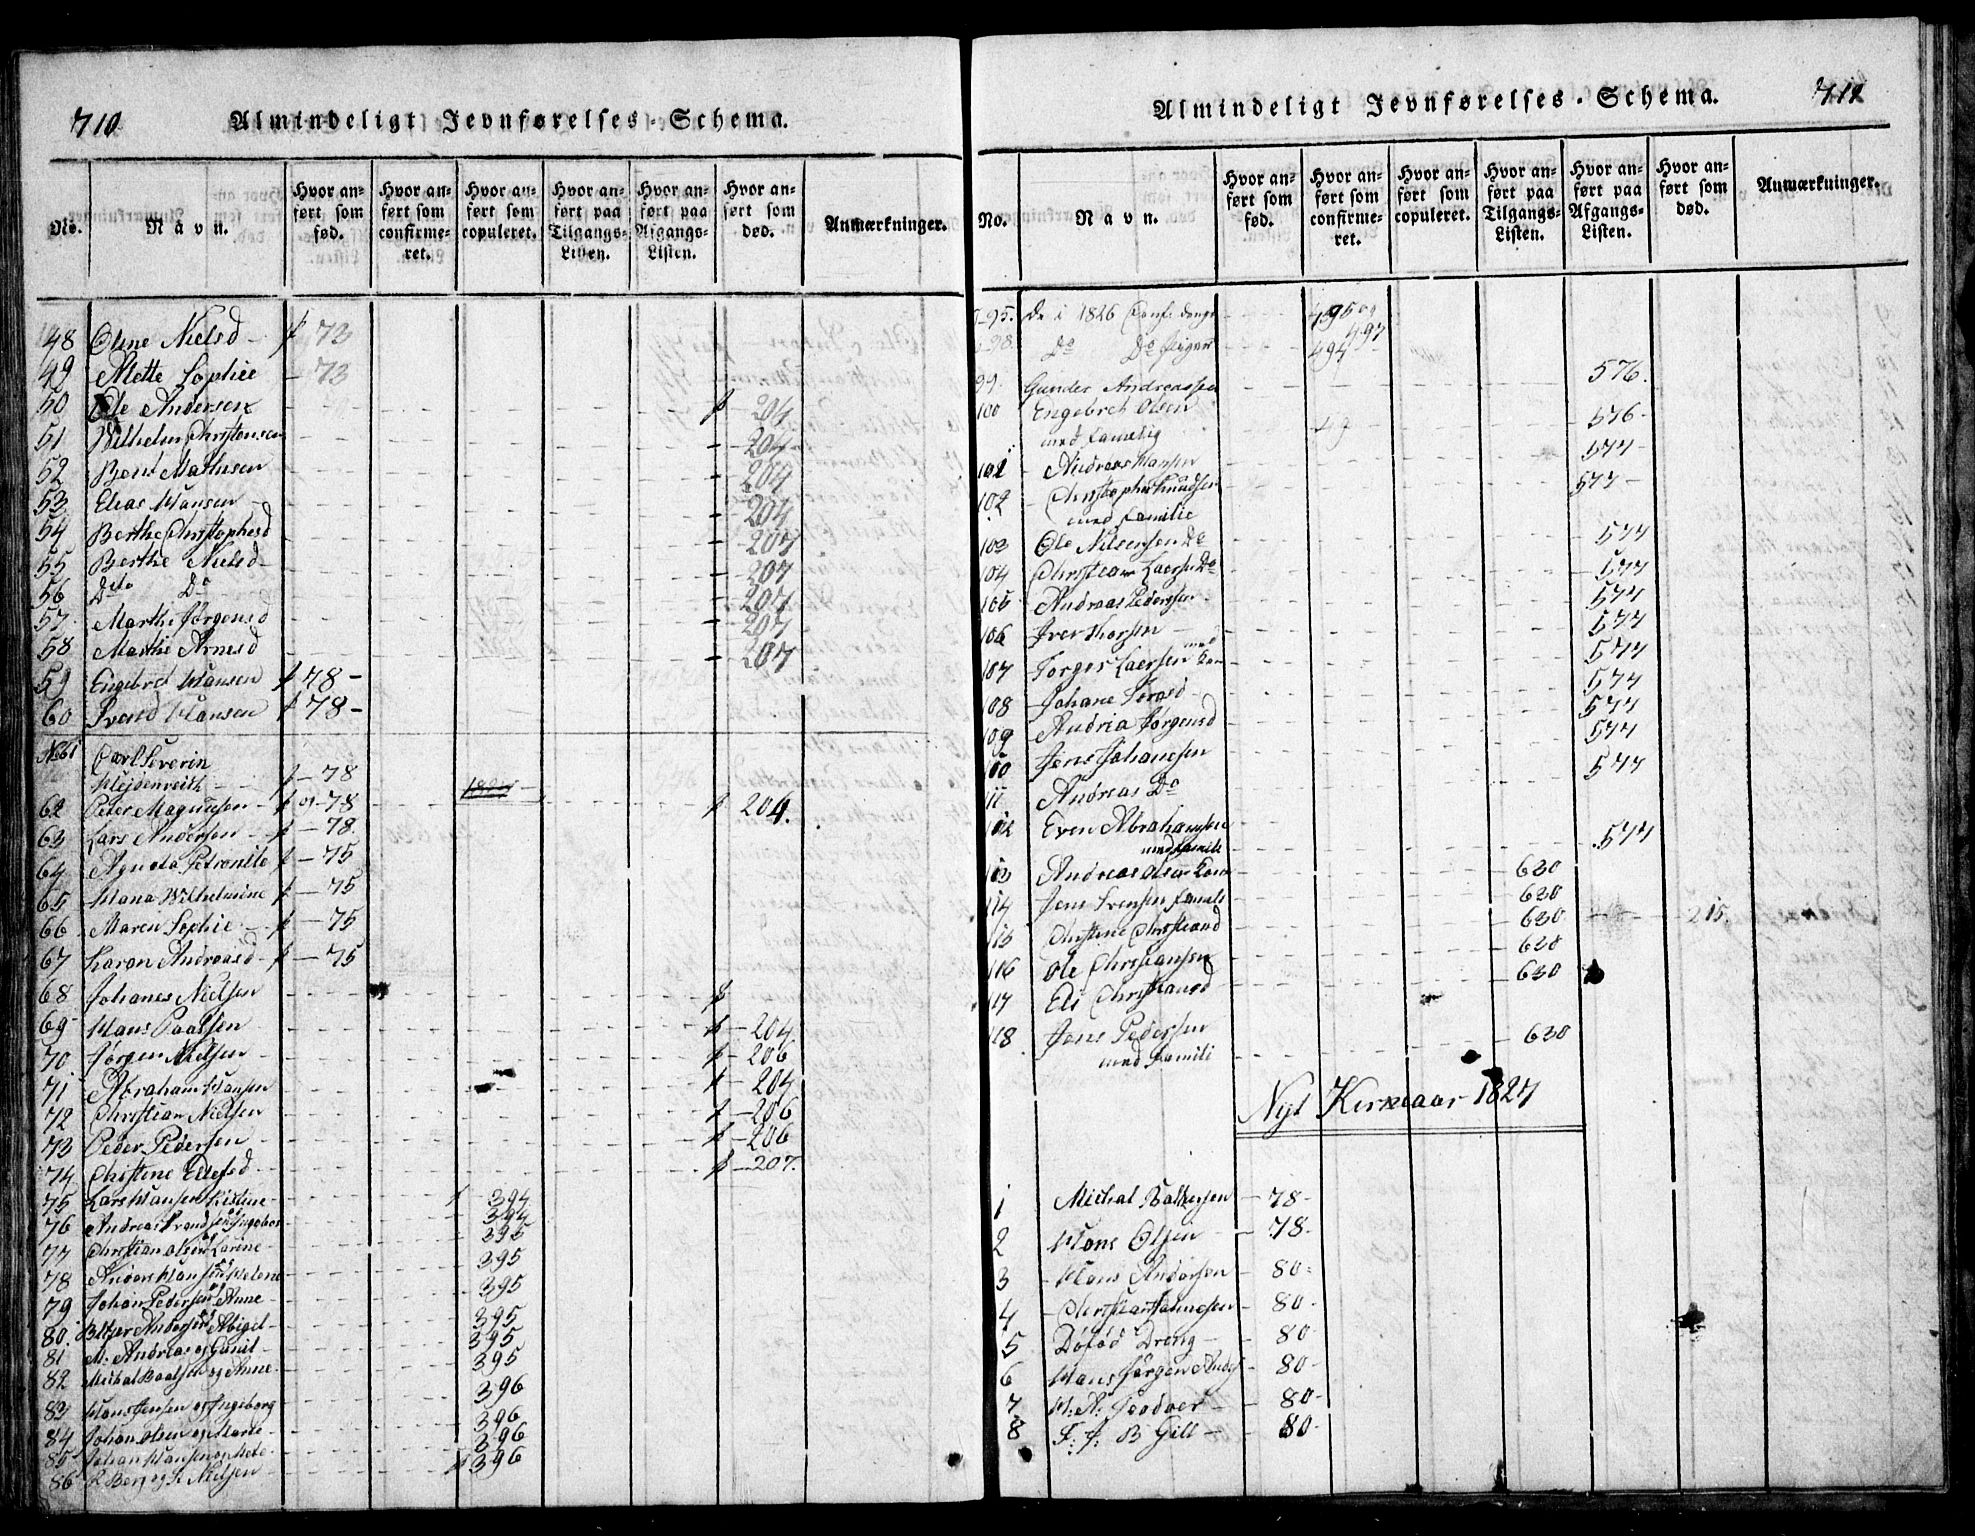 710
Almindeligt Jevnførelses-Schema.
No. Navn. Hvor anført som fød. Hvor anført som confirmeret. Hvor anført som copuleret. Hvor anført paa Tilgangs-Listen. Hvor anført paa Afgangs-Listen. Hvor anført som død. Anmærkninger.
48 Oline Nielsd - 73
49 Mette Sophie - 73
50 Ole Andersen 204
51 Wilhelm Christensen - 204
52 Bent Mathisen - 204
53 Elias Hansen - 204
54 Berthe Christophesd - 207
55 Berthe Nielsd - 207
56 Dito Do - 207
57 Marthe Jørgensd - 207
58 Marthe Arnesd - 207
59 Engebret Hansen 78-
60 Svend Hansen 78-
No 61 Carl Severin
Hejdenreich - 78
62 Peter Magnussen - 78 204.
63 Lars Andersen - 78.
64 Agneta Petronile - 75
65 Hana Wilhelmine - 75
66 Maren Sophie - 75
67 Karen Andreasd - 75
68 Johanes Nielsen
69 Hans Paalsen - 204
70 Jørgen Nielsen - 206
71 Abraham Hansen - 204
72 Christian Nielsen - 206
73 Peder Pedersen - 206
74 Christine Ellefsd - 207.
75 Lars Hansen Kistine 394
76 Andreas Svendsen Ingebor 394
77 Christian Olsen Karine 395
78 Anders Hansen Helene 395
79 Johan Pedersen Anne 395
80 Andersen Abigel 395
81 M: Andreas og Gunil 395
82 Michal Baalsen og Anne 395
83 Hans Jensen og Ingeborg 396
84 Johan Olsen og Marte 396
85 Johan Hansen og Mete 396
86 Berg og Nielsen 396
711
Almindeligt Jevnførelses-Schema.
No. Navn. Hvor anført som fød. Hvor anført som confirmeret. Hvor anført som copuleret. Hvor anført paa Tilgangs-Listen. Hvor anført paa Afgangs-Listen. Hvor anført som død. Anmærkninger.
95. De i 1826 Conf: drenge 495 og
497
98. Do Do piger 494
99. Gunder Andreassen 576.
100 Engebret Olsen 576
med familig
101 Andreas Hansen 577
102 Christopher Knudsen 577
med familie
103 Ole Nilsensen Do 577
104 Christian Laersen Do 577
105 Andreas Pedersen 577
106 Iver Thorsen 577
107 Torger Laersen med Fam 577
108 Johane Torgsd 577
109 Andria Jørgensd 577
110 Jens Johannesen 577
111 Andreas Do 577
112 Even Abrahamsen
med familie 577
113 Andreas Olsen Fam 630
114 Jens Svensen famile 630
115 Christine Christiansd 630 215.
116 Ole Christiansen 620
117 Eli Christiansd 630
118 Jens Pedersen 630
med Famili
Nyt Kirkeaar 1827
1 Michal Baltzersen - 78-
2 Hans Olsen - 78-
3 Hans Andersen - 80-
4 Christian Hansen - 80-
5 Døfød Dreng - 80-
6 Hans Jørgen Anders - 80-
7 H: A: - 80-
8 F: J: B Gill - 80-